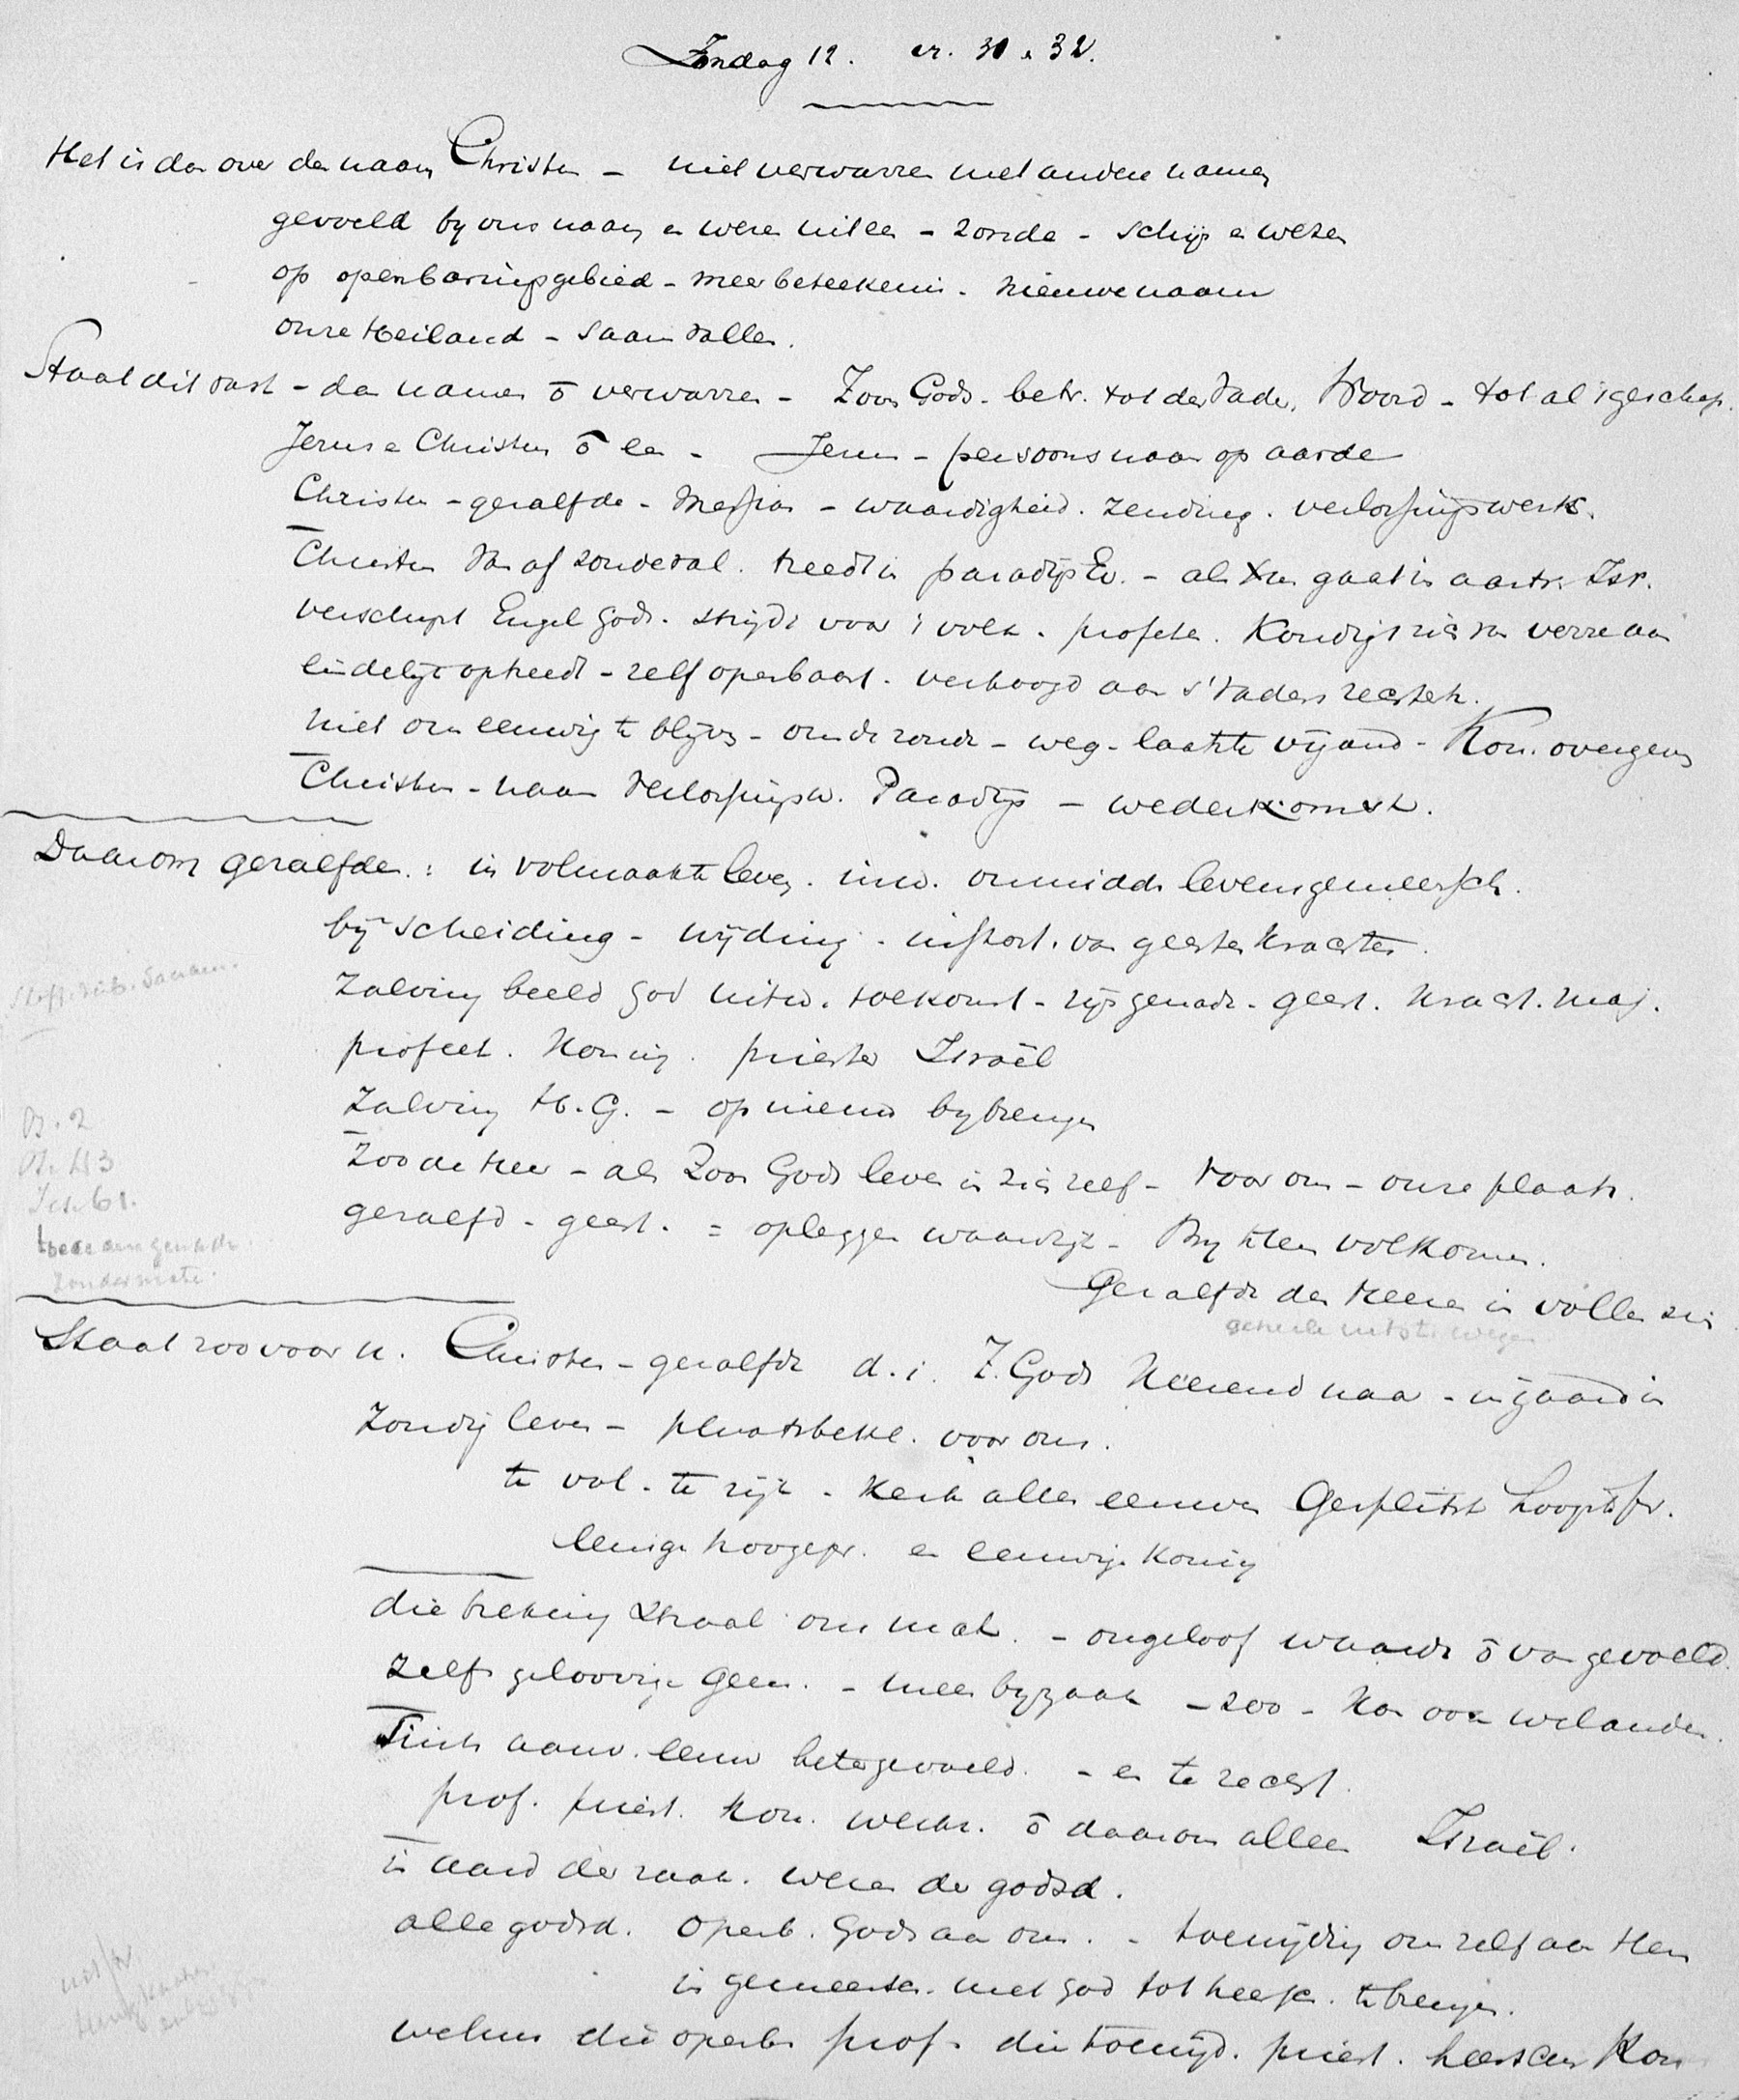 Zondag 12. vr. 31 & 32.
Het is dan over den naam Christus - niet verwarren met andere namen
gevoeld bij ons naam en wezen uiteen - zonde - schijn en wezen
op openbaringsgebied - meer beteekenis. nieuwe naam
onze Heiland - saam vallen.
Staat dit vast - dan namen ō verwarren - Zoon Gods - betr. tot den Vader. Woord - tot al 't geschap.
Jezus en Christus ō een - Jezus - persoonsnaam op aarde
Christus - gezalfde - Messias - waardigheid. zending. verlossingswerk.
Christus van af zondeval. treedt in paradijs Ev. - als Xus gaat in aartv. Isr.
verschijnt Engel Gods. strijdt voor 't volk. profeten. Kondigt zich van verre aan
eindelijk optreedt - zelf openbaart. verhoogd aan 's Vaders rechterh.
niet om eeuwig te blijven - om de zonde - weg - laatste vijand - Kon. overgeven
Christus - naam verlossingsw. Paradijs - wederkomst.
Daarom gezalfde : in volmaakte leven. inw. onmidd. levensgemeensch.
bij scheiding - wijding - instort. van geesteskrachten.
Zalving beeld God uitw. toekomst - rijk genade - geest. kracht. maj.
profeet. Koning. priester Israël
Zalving H.G. - opnieuw bijbrengen
Zoo de Heer - als Zoon Gods leven in zich zelf - voor ons - onze plaats.
gezalfd - geest. = opleggen waardigh. - Bij Hem volkomen.
Gezalfde des Heeren in vollen zin
Ps. 2
Jes. 61.
zonder mate.
Staat zoo voor u. Christus - gezalfde d.i. Z. Gods neerend naar - ingaand in
zondig leven - plaatsbekl. voor ons.
te vol. te rijk. Kerk alle eeuwen Gesplitst hoogste pr.
eenige hoogepr. en eeuwige Koning
die trekking straal ons mat. - ongeloof waarde ō van gevoeld.
Zelfs geloovige Gem. - meer bijzaak - zoo - kon ook wel anders.
Sinds aanv. eeuw beter gevoeld. - en te recht.
prof. priest. kon. werkz. ō daarom alleen Israël.
in aard der zaak. wezen der godsd.
alle godsd. openb. Gods aan ons. - toewijding ons zelf aan Hem
in gemeensch. met God tot heersch. te brengen.
welnu die openb. prof. die toewijd. priest. heerschen Kon